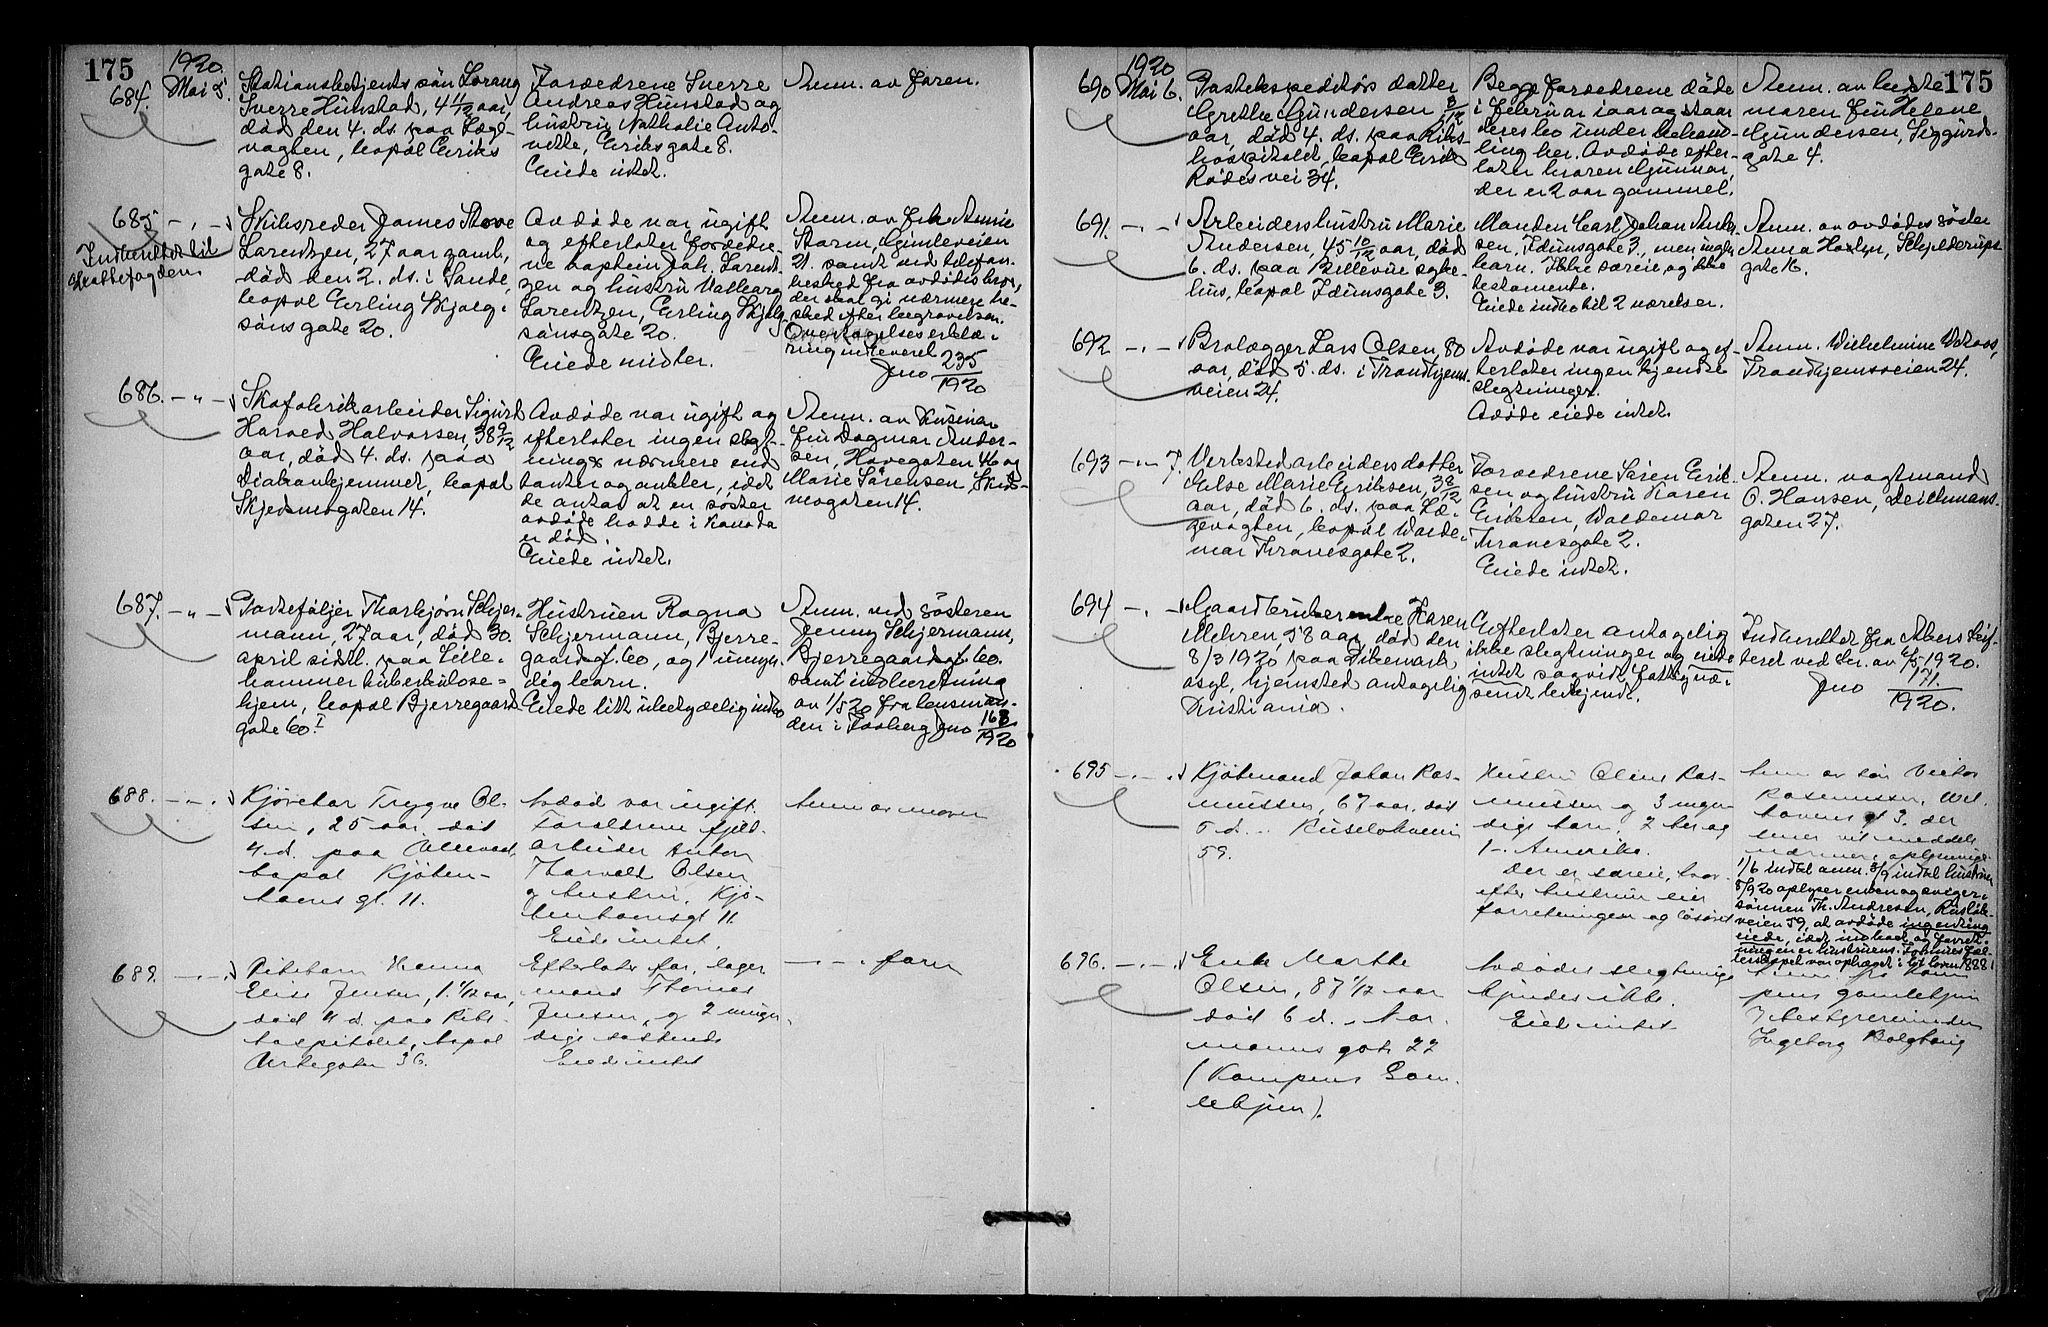 175
1920.
684. Mai 5.
Stationsbetjents søn Lorang
Sverre Hunstad, 4 4/12 aar,
død den 4. ds. paa Læge-
vagten, bopæl Eriks
gate 8.
Foreldrene Sverre
Andreas Hunstad og
hustru Nathalie Anto-
nette, Eriksgate 8.
Eiede intet.
Anm. av faren.
685 - " -
Indberettet til
Skattefogden
Skibsreder James Stove
Larentzen, 27 aar gaml,
død den 2. ds. i Sande,
bopæl Erling Skjalg-
sønsgate 20.
Avdøde var ugift
og efterlater foreldre-
ne kaptein Joh. Larent-
zen og hustru Valborg
Larentzen, Erling Skjalg-
sønsgate 20.
Eiede midler.
Anm. av frk. Annie
Starm, Gimleveien
21. samt ved telefon-
besked fra avdødes bror,
der skal gi nærmere be-
sked efter begravelsen.
Overtagelseserklæ-
ring indleveret
Jno 235
1920
686. - " -
Skofabrikarbeider Sigurd
Harald Halvorsen, 38 9/12
aar, død 4. ds. paa
Diakonhjemmet, bopæl
Skjedsmogaten 14.
Avdøde var ugift og
efterlater ingen slegt-
ninge nærmere end
tanter og onkler, idet
de antar at en søster
avdøde hadde i Kanada
er død.
Eiede intet.
Anm. av kusinen
fru Dagmar Ander-
sen, Hovegaten 46 og
Marie Sørensen, Skeds-
mogaten 14.
687. - " -
Porteføljer Thorbjørn Schjer-
mann, 27 aar, død 30.
april sidstl. paa Lille-
hammer tuberkulose-
hjem, bopæl Bjerregaards-
gate 60 I
Hustruen Ragna
Schjermann, Bjerre-
gaardsg. 60, og 1 umyn-
dig barn.
Eiede litt ubetydelig indbo
Anm. ved søsteren
Jenny Schjermann,
Bjerregaardsg. 60.
samt indberetning
av 1/5 20 fra lensman-
den i Faaberg Jno 168
1920
688. - " -
Kjørekar Trygve Ol-
sen, 25 aar, død
4. d. paa Ullevaal,
bopæl Kjøben-
havns gt. 11.
Avdød var ugift.
Forældrene fjeld-
arbeider Anton
Thorvald Olsen
og hustru, Kjø-
benhavnsgt 11.
Eiede intet.
Anm av moren
689. - " -
Pikebarn Hanna
Elise Jensen, 1 1/12 aar,
død 4 d. paa Riks-
hospitalet, bopæl
Urtegaten 36.
Efterlater far, lager
mand Thomas
Jensen, og 2 umyn-
dige søskende
Eied intet
- - - faren
175
1920
690 Mai 6.
Postekspeditørs datter
Grethe Gundersen 8/12
aar, død 4. ds. paa Riks-
hospitalet, bopæl Erik
Rødes vei 34.
Begge foreldrene døde
i februar iaar og staar
deres bo under behand-
ling her. Avdøde efter-
later broren Gunnar,
der er 2 aar gammel.
Anm. av bedste
moren fru Helene
Gundersen, Siggurds-
gate 4.
691. - " -
Arbeiders hustru Marie
Andersen, 45 10/12 aar, død
6. ds. paa Bellevue syke-
hus, bopæl Idunsgate 3.
Manden Carl Johan Ander-
sen, Idunsgate 3, men ingen
barn. Ikke særeie og ikke
testamente.
Eiede indbo til 2 værelser.
Anm. av avdødes søster
Anna, Schjelderups-
gate 16.
692 - " -
Brolægger Lars Olsen, 80
aar, død 5. ds. i Trondhjems-
veien 24.
Avdøde var ugift og ef-
terlater ingen kjendte
slegtninger.
Avdøde eiede intet.
Anm. Wilhelmine
Trondhjemsveien 24.
693 - " - 7.
Verkstedarbeiders datter
Else Marie Eriksen, 3 8/12
aar, død 6. ds. paa Læ-
gevagten, bopæl Walde-
mar Thranesgate 2.
Foreldrene Søren Erik-
sen og hustru Karen
Eriksen, Waldemar
Thranesgate 2.
Eiede intet.
Anm. vagtmand
O. Hansen, Deichmans-
gaten 27.
694 - " -
Gaardbrukerenke Karen
Mehren, 58 aar, død den
8/3 1920 paa Dikemark
asyl, hjemsted antagelig
Kristiania.
Efterlater antagelig
ikke slegtninger og eiede
intet saavidt fattigvæ-
senet bekjendt.
Indberettet fra Akers Skif-
teret ved skr. av 6/5 1920.
Jno 171.
1920.
695 - " -
Kjøbmand Johan Ras-
mussen, 67 aar, død
5 d. i Ruseløkveien
59.
Hustru Oline Ras-
mussen og 3 myn-
dige barn, 2 her og
1 i Amerika.
Der er særeie, hvor-
efter hustruen eier
forretningen og løsøret
Anm av søn Victor
Rasmussen, Wel-
havens gt 3. der
senere vil meddele
nærmere oplysninger.
1/6 indtel anm. 8/9 indtel hustruen
8/9 20 oplyser enken og sviger-
sønnen Th. Andresen, Ruseløk-
veien 59, at avdøde ingenting
eiede, idet indboet og forret-
ningen er hustruens. Formuesfæl-
lesskapet var ophævet i flg. loven 1888.
696. - " -
Enke Marthe
Olsen, 87 1/12 aar
død 6 d. i Nor-
manns gate 22
(Kampens Gam-
lehjem).
Avdødes slegtninge
kjendes ikke.
Eied intet
Anm fra Kam
pens gamlehjem
v/ bestyrerinden
Ingeborg